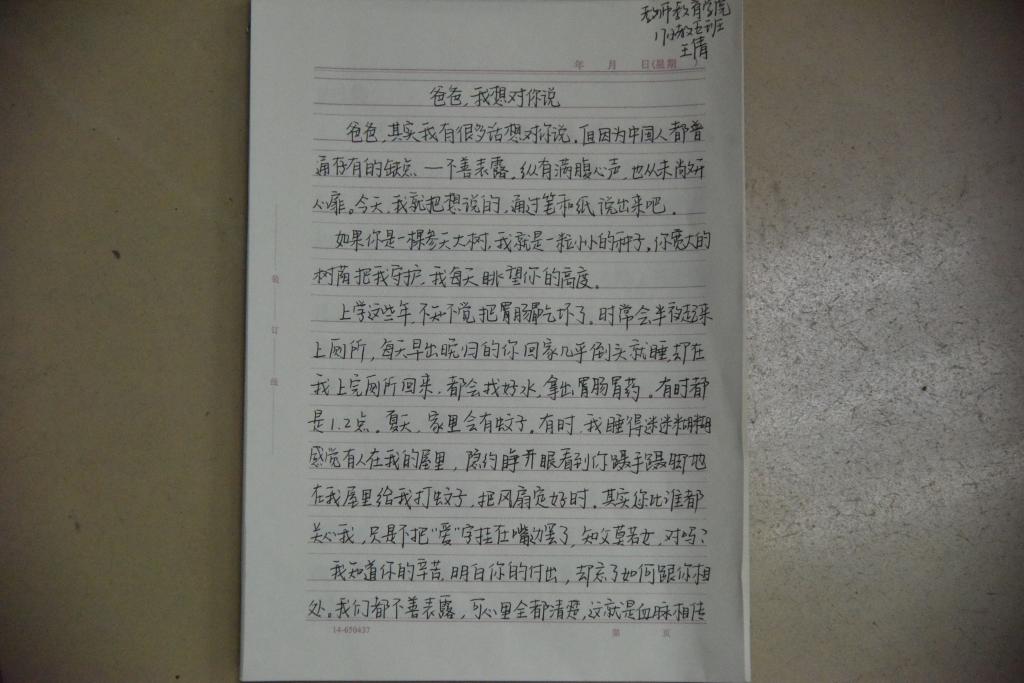 教师教育学院
17小教五班
王倩
年 月 日(星期 )
爸爸,我想对你说
爸爸,其实我有很多话想对你说。但因为中国人都普
通存有的缺点——不善表露。纵有满腹心声,也从未尚好开
心扉。今天,我就把想说的,通过笔和纸说出来吧。
如果你是一棵参天大树,我就是一粒小小的种子。你宽大的
树荫把我守护,我每天眺望你的高度。
上学这些年,不知不觉把胃肠都吃坏了。时常会半夜起来
上厕所,每天早出晚归的你回家几乎倒头就睡,却在
我上完厕所回来,都会找好水,拿出胃肠胃药。有时都
是1.2点。夏天,家里会有蚊子。有时,我睡得迷迷糊糊
感觉有人在我的屋里,隐约睁开眼看到你蹑手蹑脚地
在我屋里给我打蚊子,把风扇定好时。其实你比谁都
关心我,只是不把“爱”字挂在嘴边罢了,知父莫若女,对吗?
我知道你的辛苦,明白你的付出,却忘了如何跟你相
处。我们都不善表露,可心里全都清楚,这就是血脉相传
装
订
线
14-650437
第 页